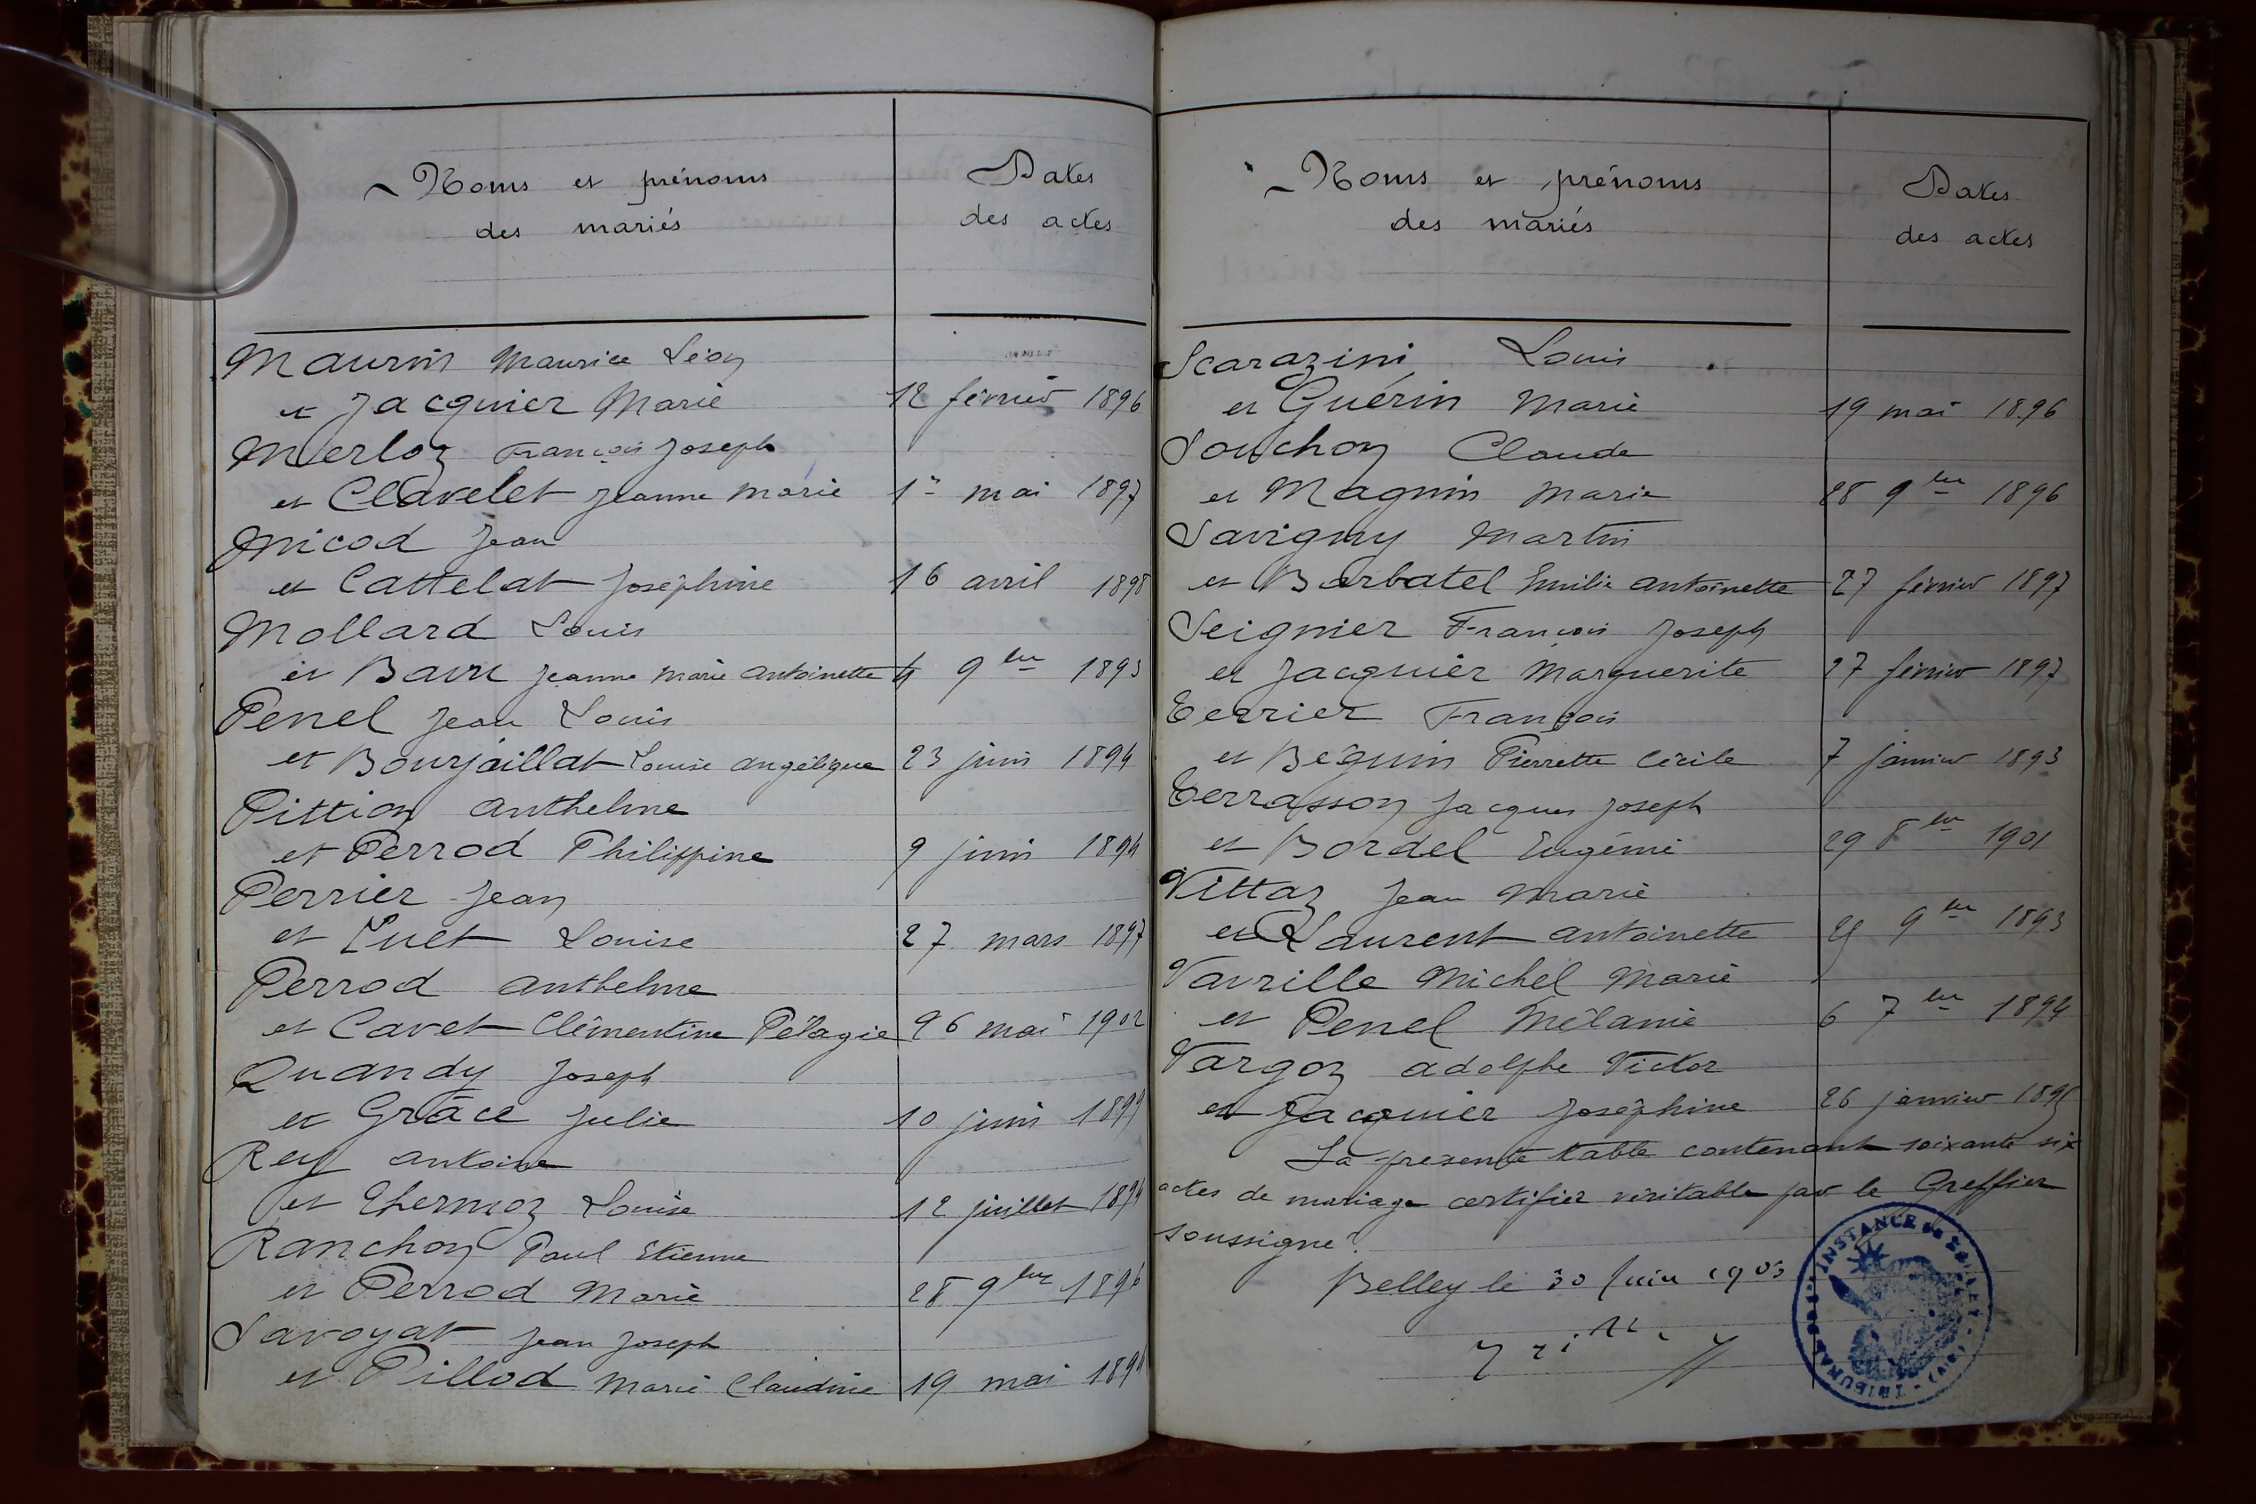 Noms et prénoms
des mariés
Dates
des actes
Maurin Maurice Léon
et Jacquier Marie 12 février 1896
Merloz François Joseph
et Clavelet Jeanne Marie 1er mai 1897
Micod Jean
et Cattelat Joséphine 16 avril 1898
Mollard Louis
et Bavu Jeanne Marie Antoinette 4 9bre 1893
Penel Jean Louis
et Bourjaillat Louise Angélique 23 juin 1894
Pittion Anthelme
et Perrod Philippine 9 juin 1894
Perrier Jean
et Luet Louise 27 mars 1897
Perrod Anthelme
et Cavet Clémentine Pélagie 26 mai 1902
Quandy Joseph
et Grâce Julie 10 juin 1899
Rey Antoine
et Thermoz Louise 12 juillet 1894
Ranchon Paul Etienne
et Perrod Marie 28 9bre 1896
Savoyat Jean Joseph
et Pillod Marie Claudine 19 mai 1894
Noms et prénoms
des mariés
Dates
des actes
Scarazini Louis
et Guérin Marie 19 mai 1896
Souchon Claude
et Magnin Marie 28 9bre 1896
Savigny Martin
et Barbatel Emilie Antoinette 27 février 1897
Seignier François Joseph
et Jacquier Marguerite 27 février 1897
Terrier François
et Béguin Pierrette Cécile 7 janvier 1893
Terrasson Jacques Joseph
et Bordel Eugénie 29 8bre 1901
Vittaz Jean Marie
et Laurent Antoinette 9bre 1893
Vavrille Michel Marie
et Penel Mélanie 6 7bre 1894
Vargoz Adolphe Victor
et Jacquier Joséphine 26 janvier
La présente table contenant soixante six
actes de mariage certifier véritable par le Greffier
soussigné.
Belley le 30 Juin 1903
TRIBUNAL DE 1re INSTANCE DE BELLEY (AIN)